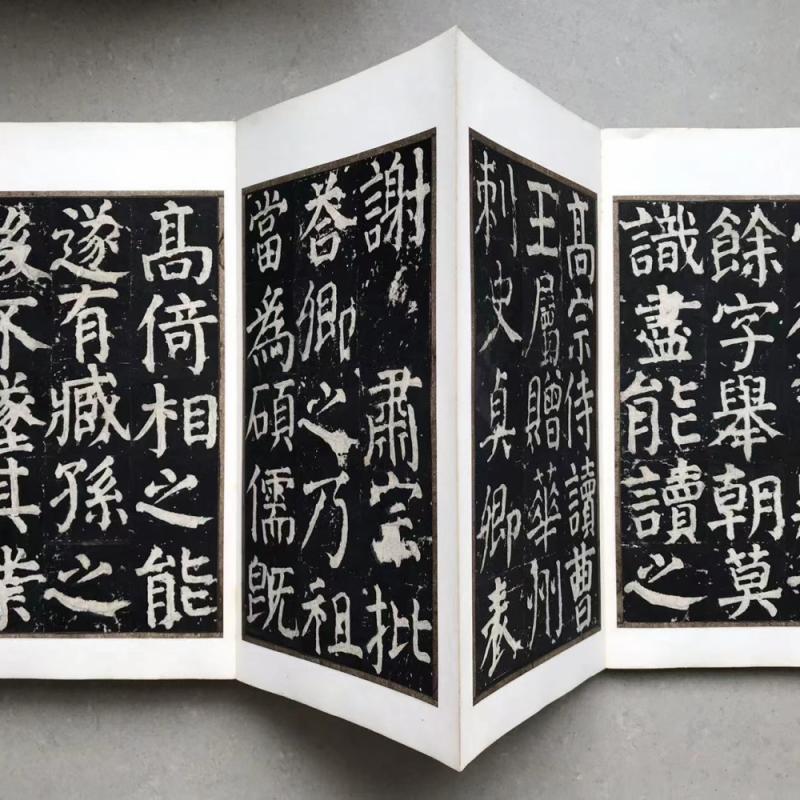 餘字舉朝莫
識盡能讀之
髙宗侍讀曹
王屬贈華州
刺史真卿表
謝 肅宗批
荅卿之乃祖
當為碩儒既
髙倚相之能
遂有臧孫之
後不墜其業